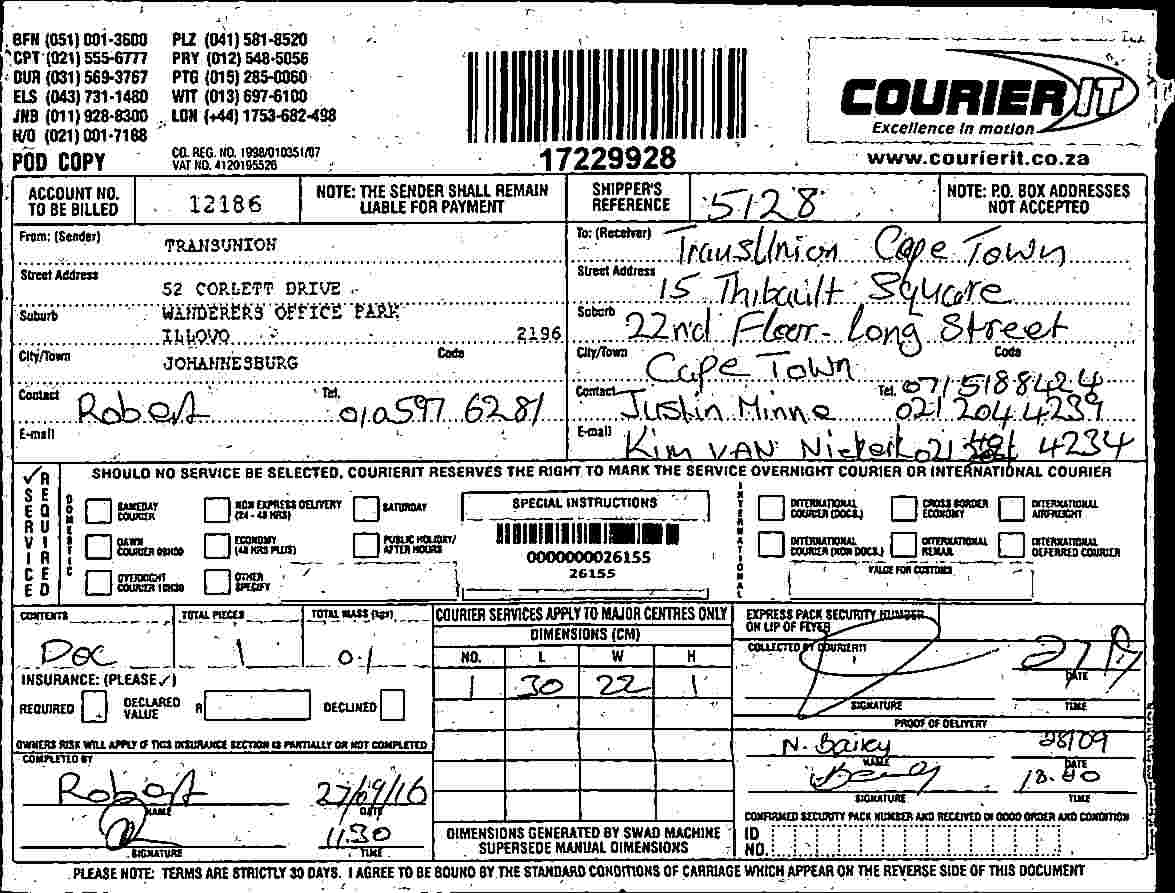 BFN (051) 001-3600 PLZ (041) 581-8520
CPT (021) 555-6777 PRY (012) 548-5056
DUR (031) 569-3767 PTG (015) 285-0060
ELS (043) 731-1480 WIT (013) 697-6100
JNB (011) 928-8300 LDN (+44) 1753-682-498
H/O (021) 001-7168
POD COPY
CO. REG. NO. 1998/010351/07
VAT NO. 4120195526
17229928
COURIERIT
Excellence in motion
www.courierit.co.za
ACCOUNT NO. TO BE BILLED
12186
NOTE: THE SENDER SHALL REMAIN LIABLE FOR PAYMENT
SHIPPER'S REFERENCE
5128
NOTE: P.O. BOX ADDRESSES NOT ACCEPTED
From: (Sender) TRANSUNION
Street Address 52 CORLETT DRIVE
Suburb WANDERERS OFFICE PARK
ILLOVO 2196
City/Town JOHANNESBURG Code
Contact Robert Tel. 010 597 6281
E-mail
To: (Receiver) TransUnion Cape Town
Street Address 15 Thibault Square
Suburb 22nd Floor - Long Street
City/Town Cape Town Code
Tel. 071 5188424
Contact Justin Minne 021 204 4239
E-mail Kim VAN Niekerk 021 4234
SHOULD NO SERVICE BE SELECTED, COURIERIT RESERVES THE RIGHT TO MARK THE SERVICE OVERNIGHT COURIER OR INTERNATIONAL COURIER
✓ SERVICE REQUIRED
DOMESTIC
SAMEDAY COURIER
NON EXPRESS DELIVERY (24 - 48 HRS)
SATURDAY
DAWN COURIER 09H00
ECONOMY (48 HRS PLUS)
PUBLIC HOLIDAY/ AFTER HOURS
OVERNIGHT COURIER 10H30
OTHER SPECIFY
SPECIAL INSTRUCTIONS
0000000026155
26155
INTERNATIONAL
INTERNATIONAL COURIER (DOCS.)
CROSS BORDER ECONOMY
INTERNATIONAL AIRFREIGHT
INTERNATIONAL COURIER (NON DOCS.)
INTERNATIONAL REMAIL
INTERNATIONAL DEFERRED COURIER
VALUE FOR CUSTOMS
CONTENTS
Doc
TOTAL PIECES
1
TOTAL MASS (kgs)
0.1
INSURANCE: (PLEASE ✓)
REQUIRED DECLARED VALUE R DECLINED
OWNERS RISK WILL APPLY IF THIS INSURANCE SECTION IS PARTIALLY OR NOT COMPLETED
COMPLETED BY
Robert 27/09/16
NAME DATE
11:30
SIGNATURE TIME
COURIER SERVICES APPLY TO MAJOR CENTRES ONLY
DIMENSIONS (CM)
NO. L W H
1 30 22 1
DIMENSIONS GENERATED BY SWAD MACHINE
SUPERSEDE MANUAL DIMENSIONS
EXPRESS PACK SECURITY NUMBER
ON LIP OF FLYER
COLLECTED BY COURIERIT
DATE
SIGNATURE TIME
PROOF OF DELIVERY
N. Bailey 28/09
NAME DATE
SIGNATURE TIME
CONFIRMED SECURITY PACK NUMBER AND RECEIVED IN GOOD ORDER AND CONDITION
ID NO.
PLEASE NOTE: TERMS ARE STRICTLY 30 DAYS. I AGREE TO BE BOUND BY THE STANDARD CONDITIONS OF CARRIAGE WHICH APPEAR ON THE REVERSE SIDE OF THIS DOCUMENT